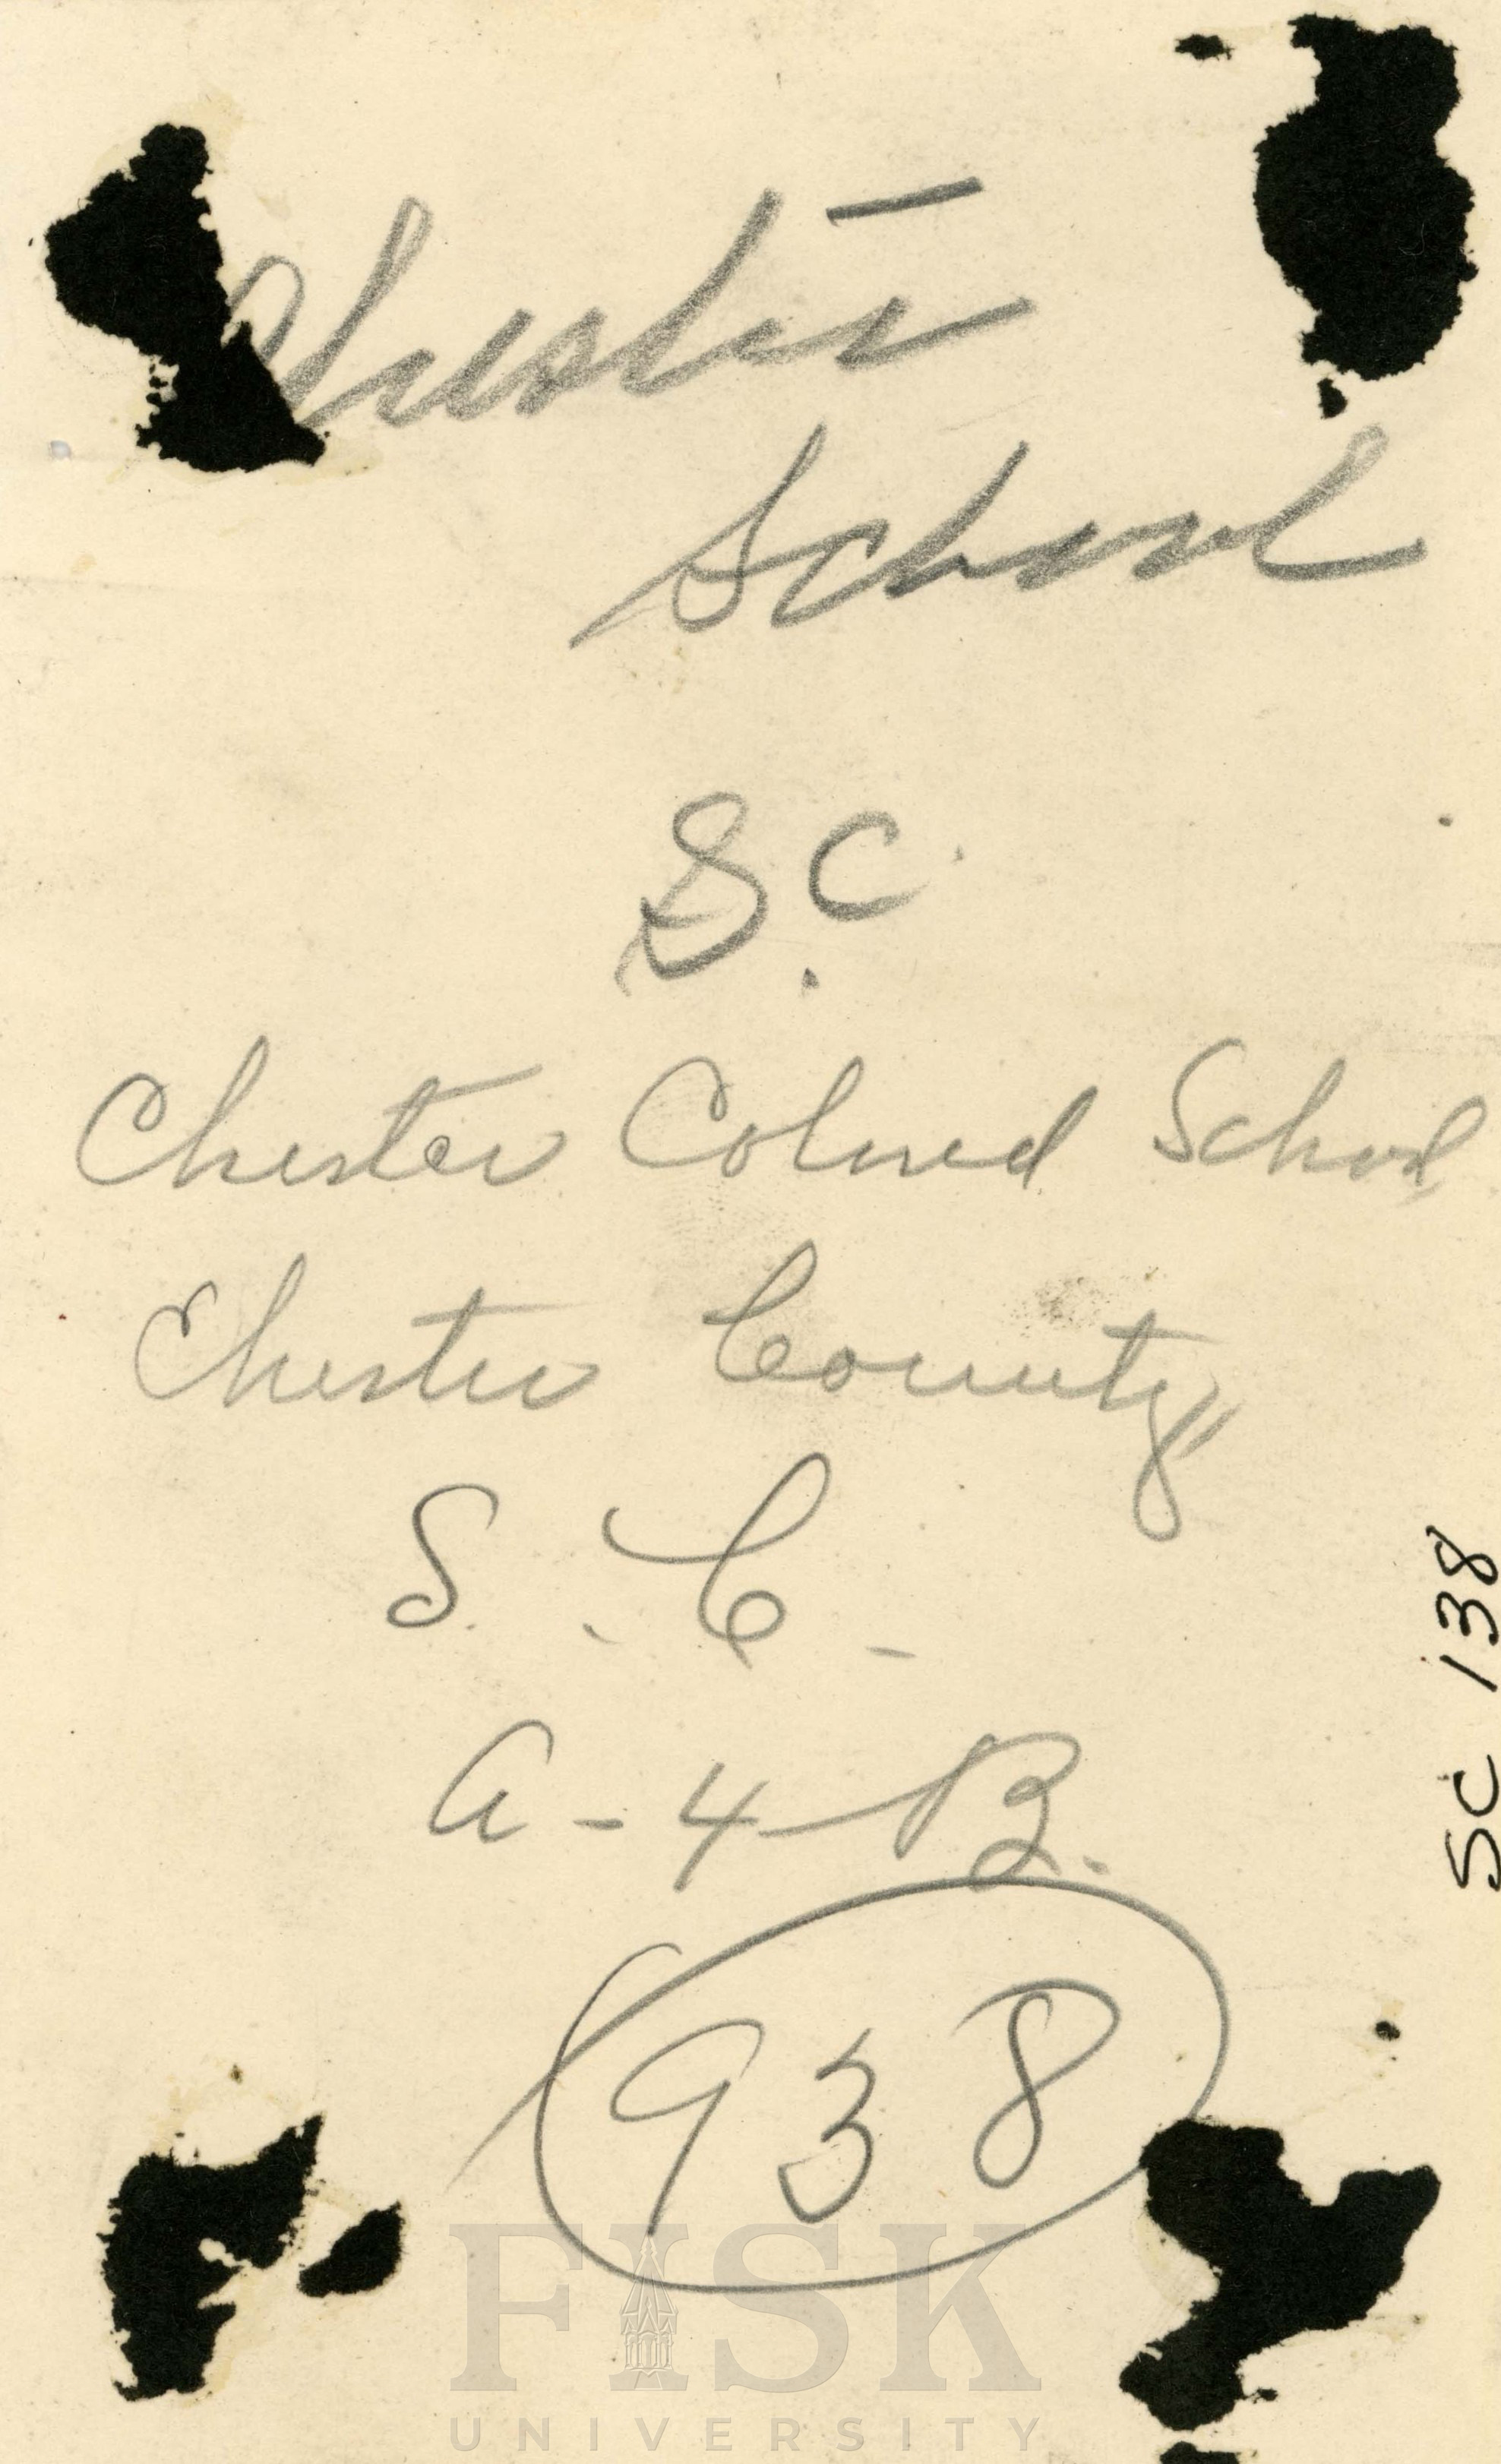 Chester
School
S.C.
Chester Colored School
Chester County,
S. C.
A-4-B.
938
SC 138
FISK
UNIVERSITY